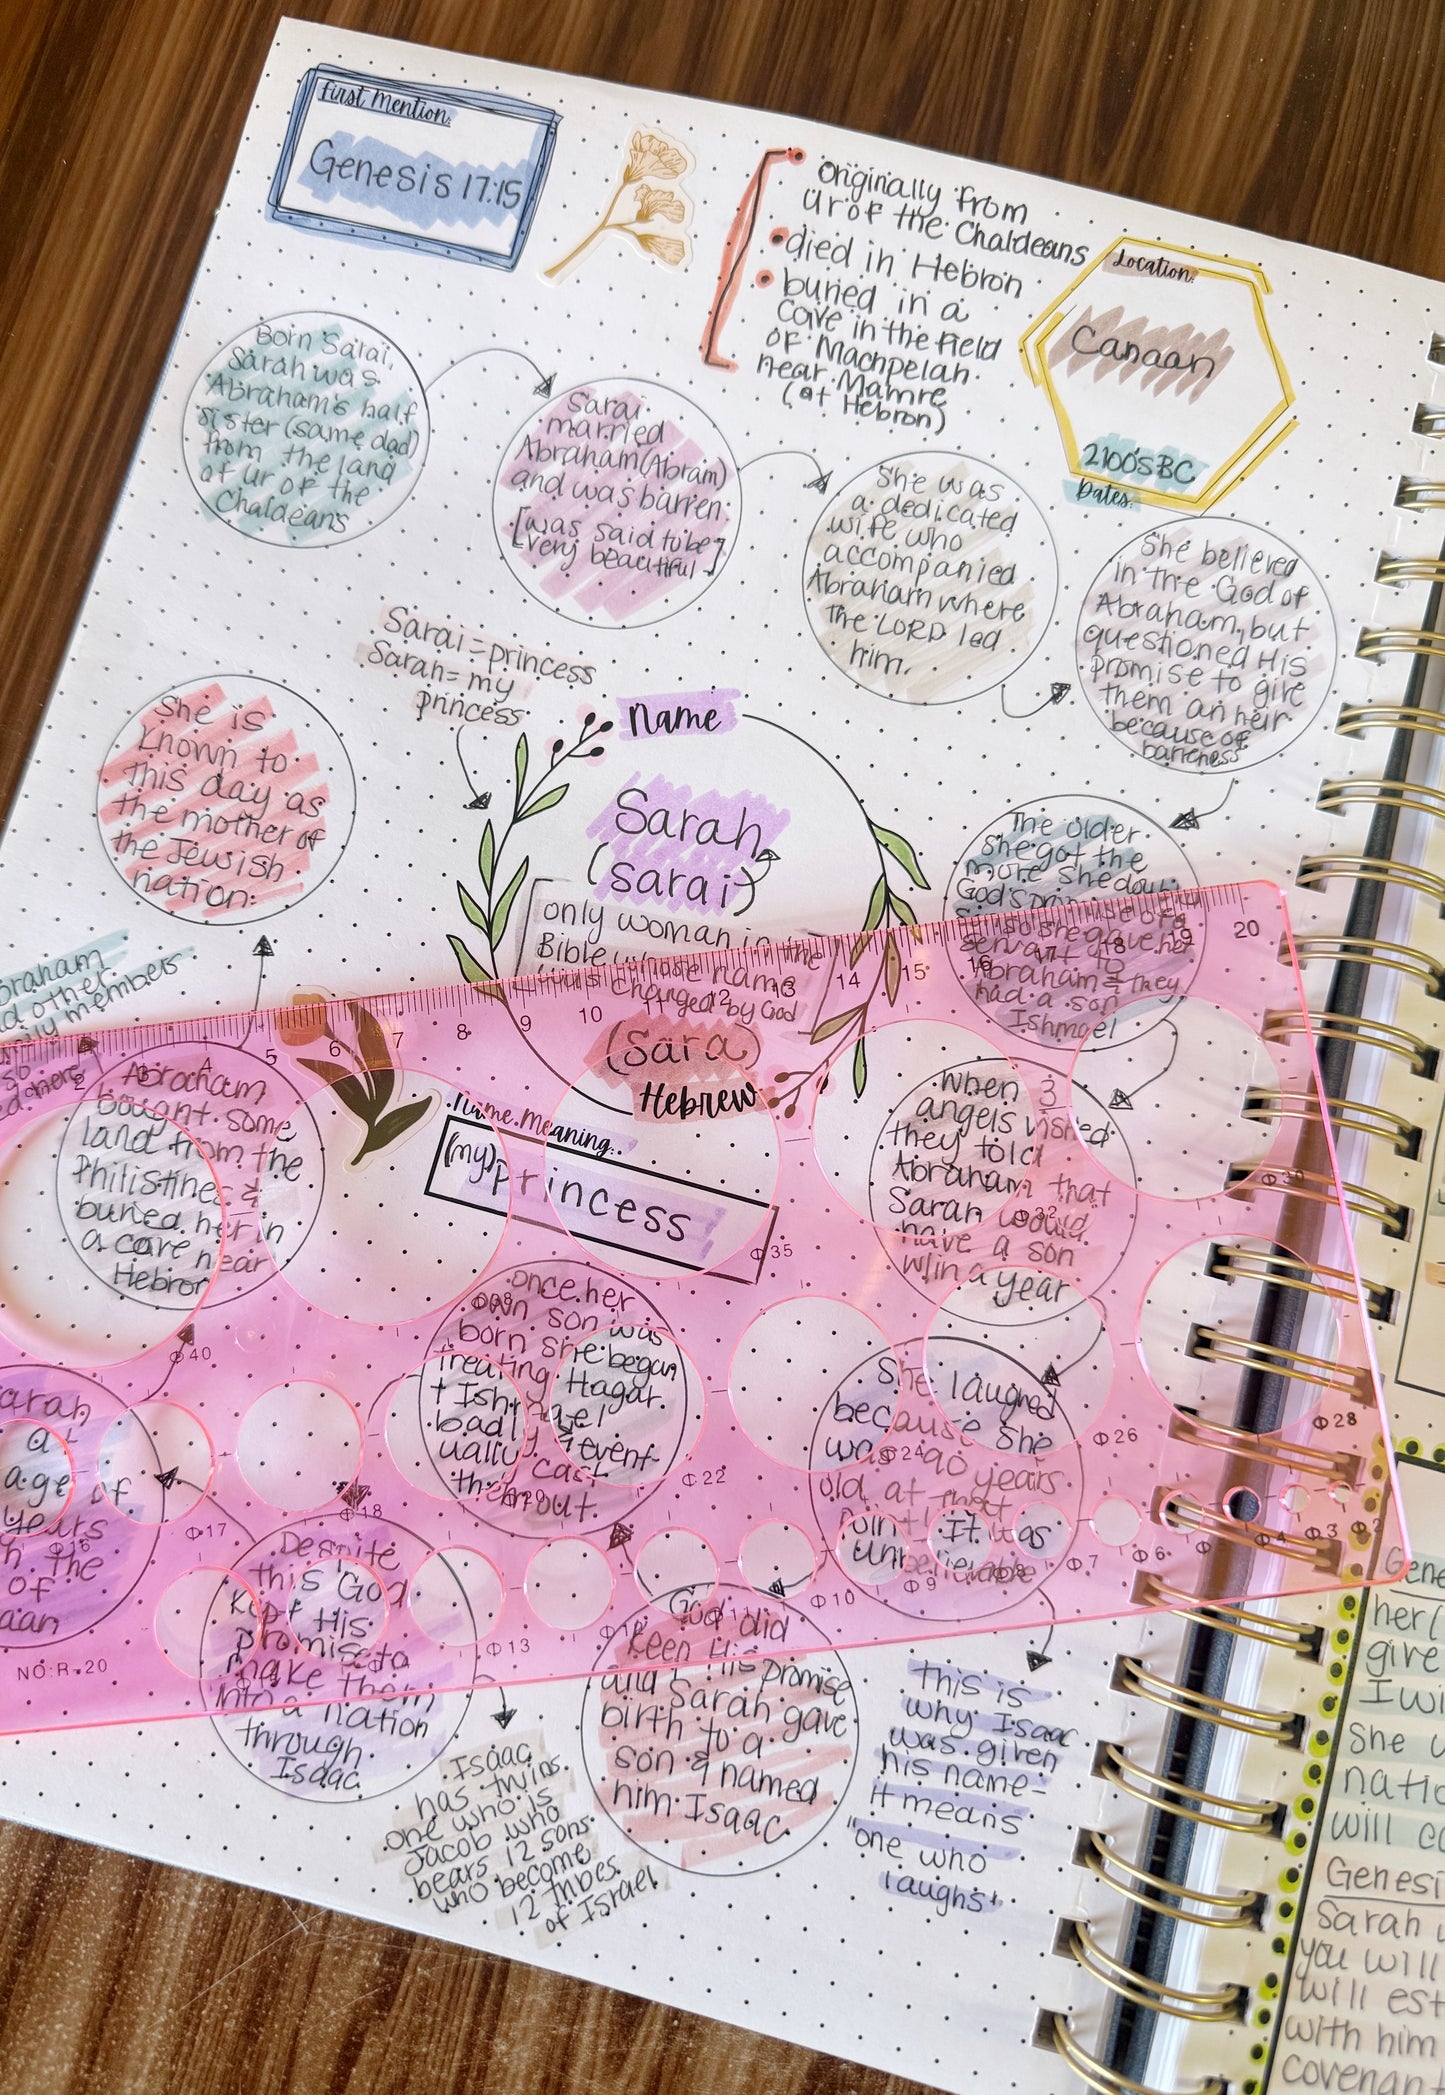 First Mention:
Genesis 17:15
originally from
Ur of the Chaldeans
died in Hebron
buried in a
cave in the field
of Machpelah
near Mamre
(at Hebron)
Location:
Canaan
2100's BC
Dates:
Born Sarai,
Sarah was
Abraham's half
sister (same dad)
from the land
of Ur of the
Chaldeans
Sarai
married
Abraham (Abram)
and was barren
[was said to be
very beautiful]
She was
a dedicated
wife who
accompanied
Abraham where
the LORD led
him.
She believed
in the God of
Abraham, but
questioned His
promise to give
them an heir
because of
barreness
Sarai = princess
Sarah = my
princess
Name
Sarah
(Sarai)
only woman in the
Bible whose name
was changed by God
(Sara)
Hebrew
Name Meaning:
(my) princess
She is
known to
this day as
the mother of
the Jewish
nation.
The older
she got the
more she
God's
so she gave her
servant to
Abraham & they
had a son
Ishmael
When 3
angels visited
they told
Abraham that
Sarah would
have a son
within a year
She laughed
because she
was 90 years
old at that
point. It was
unbelievable
This is
why Isaac
was given
his name-
it means
"one who
laughs"
God did
keep His
and His promise
Sarah gave
birth to a
son & named
him Isaac
once her
own son was
born she began
treating Hagar
+ Ishmael
badly & event-
ually cast
them out.
Despite
this God
kept His
promise to
make them
into a nation
through
Isaac
Isaac
has twins.
one who is
Jacob who
bears 12 sons
who become
12 Tribes
of Israel
arah
at
age of
years
the
of
aan
Abraham
bought some
land from the
Philistines &
buried her in
a cave near
Hebron
braham
other
ly members
here
2 3 4 5 6 7 8 9 10 11 12 13 14 15 16 17 18 19 20
Φ30
Φ32
Φ35
Φ38
Φ40
Φ28
Φ26
Φ24
Φ22
Φ20
Φ18
Φ17
Φ16
Φ14
Φ13
Φ12
Φ11
Φ10
Φ9
Φ8
Φ7
Φ6
Φ4
Φ3
Φ2
NO:R.20
Gene
her (
give
I wi
She w
natio
will c
Genesi
Sarah
you will
will est
with him
covenant